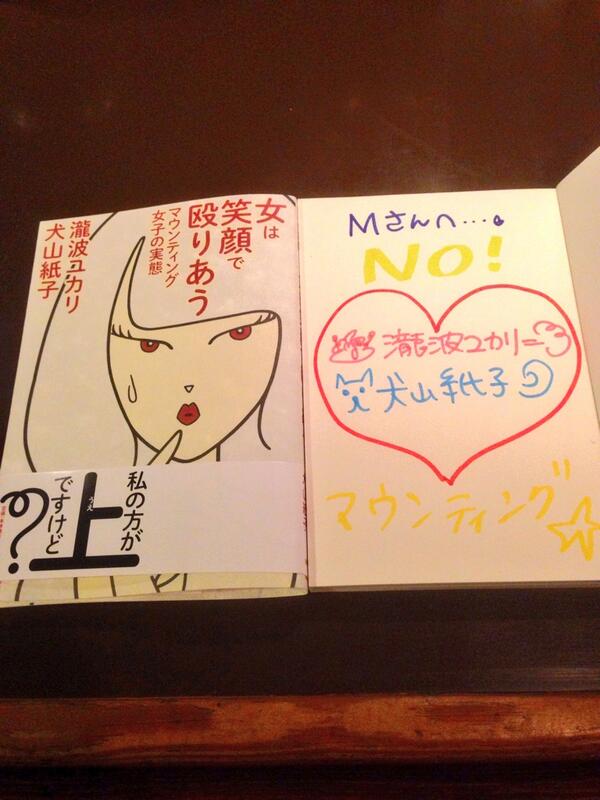 女は
笑顔で
殴りあう
マウンティング
女子の実態
瀧波ユカリ
犬山紙子
私の方が
上
うえ
ですけど
?
Mさんへ…。
NO!
瀧波ユカリ
犬山紙子
マウンティング